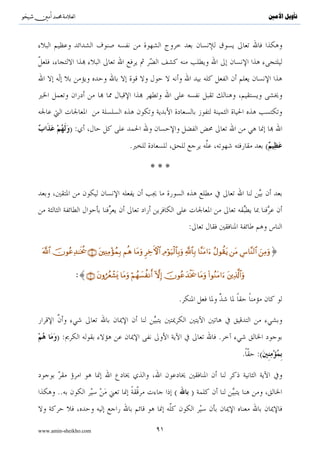 تأويل الأمين
العلامة محمد أمين شيخو
وهكذا فالله تعالى يسوق للإنسان بعد خروج الشهوة من نفسه صنوف الشدائد وعظيم البلاء
ليلتجىء هذا الإنسان إلى الله ويطلب منه كشف الضّر ثم يرفع الله تعالى البلاء بهذا الالتجاء، فلعلّ
هذا الإنسان يعلم أن الفعل كله بيد الله وأنه لا حول ولا قوة إلا بالله وحده ويؤمن بلا إله إلا الله
ويخشى ويستقيم، وهنالك تقبل نفسه على الله وتطهر بهذا الإقبال مما بها من أدران وتعمل الخير
وتكتسب هذه الحياة الثمينة لتفوز بالسعادة الأبدية وتكون هذه السلسلة من المعالجات التي عالجه
الله بها إنما هي من الله تعالى محض الفضل والإحسان ولله الحمد على كل حال، أي: (وَلَهُمْ عَذَابٌ
عَظِيمٌ) بعد مقارفته شهوته، علَّه يرجع للحق، للسعادة للخير.
* * *
بعد أن بيَّن لنا الله تعالى في مطلع هذه السورة ما يجب أن يفعله الإنسان ليكون من المتقين، وبعد
أن عرَّفنا بما يطبِّقه تعالى من المعالجات على الكافرين أراد تعالى أن يعرِّفنا بأحوال الطائفة الثالثة من
الناس وهم طائفة المنافقين فقال تعالى:
﴿ وَمِنَ ٱلنَّاسِ مَن يَقُولُ ءَامَنَّا بِٱللَّهِ وَبِٱلْيَوْمِ ٱلْآخِرِ وَمَا هُم بِمُؤْمِنِينَ ۝ يُخَٰدِعُونَ ٱللَّهَ
وَٱلَّذِينَ ءَامَنُوا۟ وَمَا يَخْدَعُونَ إِلَّآ أَنفُسَهُمْ وَمَا يَشْعُرُونَ ۝ ﴾:
لو كان مؤمناً حقاً لما شذَّ ولما فعل المنكر.
وبشيء من التدقيق في هاتين الآيتين الكريمتين يتبيَّن لنا أن الإيمان بالله تعالى شيء وأنَّ الإقرار
بوجود الخالق شيء آخر. فالله تعالى في الآية الأولى نفى الإيمان عن هؤلاء بقوله الكريم: (وَمَا هُمْ
بِمُؤْمِنِينَ): حقاً.
وفي الآية الثانية ذكر لنا أن المنافقين يخادعون الله، والذي يخادع الله إنما هو امرؤ مقرّ بوجود
الخالق، ومن هنا يتبيَّن لنا أن كلمة ( بالله ) إذا جاءت مرقَّقةً إنما تعني مَنْ سيّر الكون به.. وهكذا
فالإيمان بالله معناه الإيمان بأن سيّر الكون كلّه إنما هو قائم بالله راجع إليه وحده، فلا حركة ولا
www.amin-sheikho.com
٩١